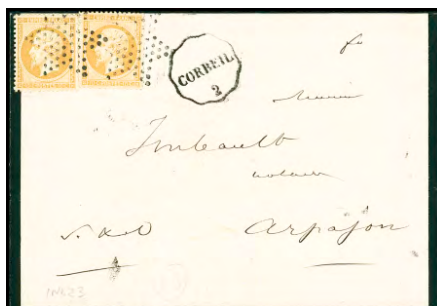 CORBEIL
2
Monsieur
Imbault
notaire
S. & O
Arpajon